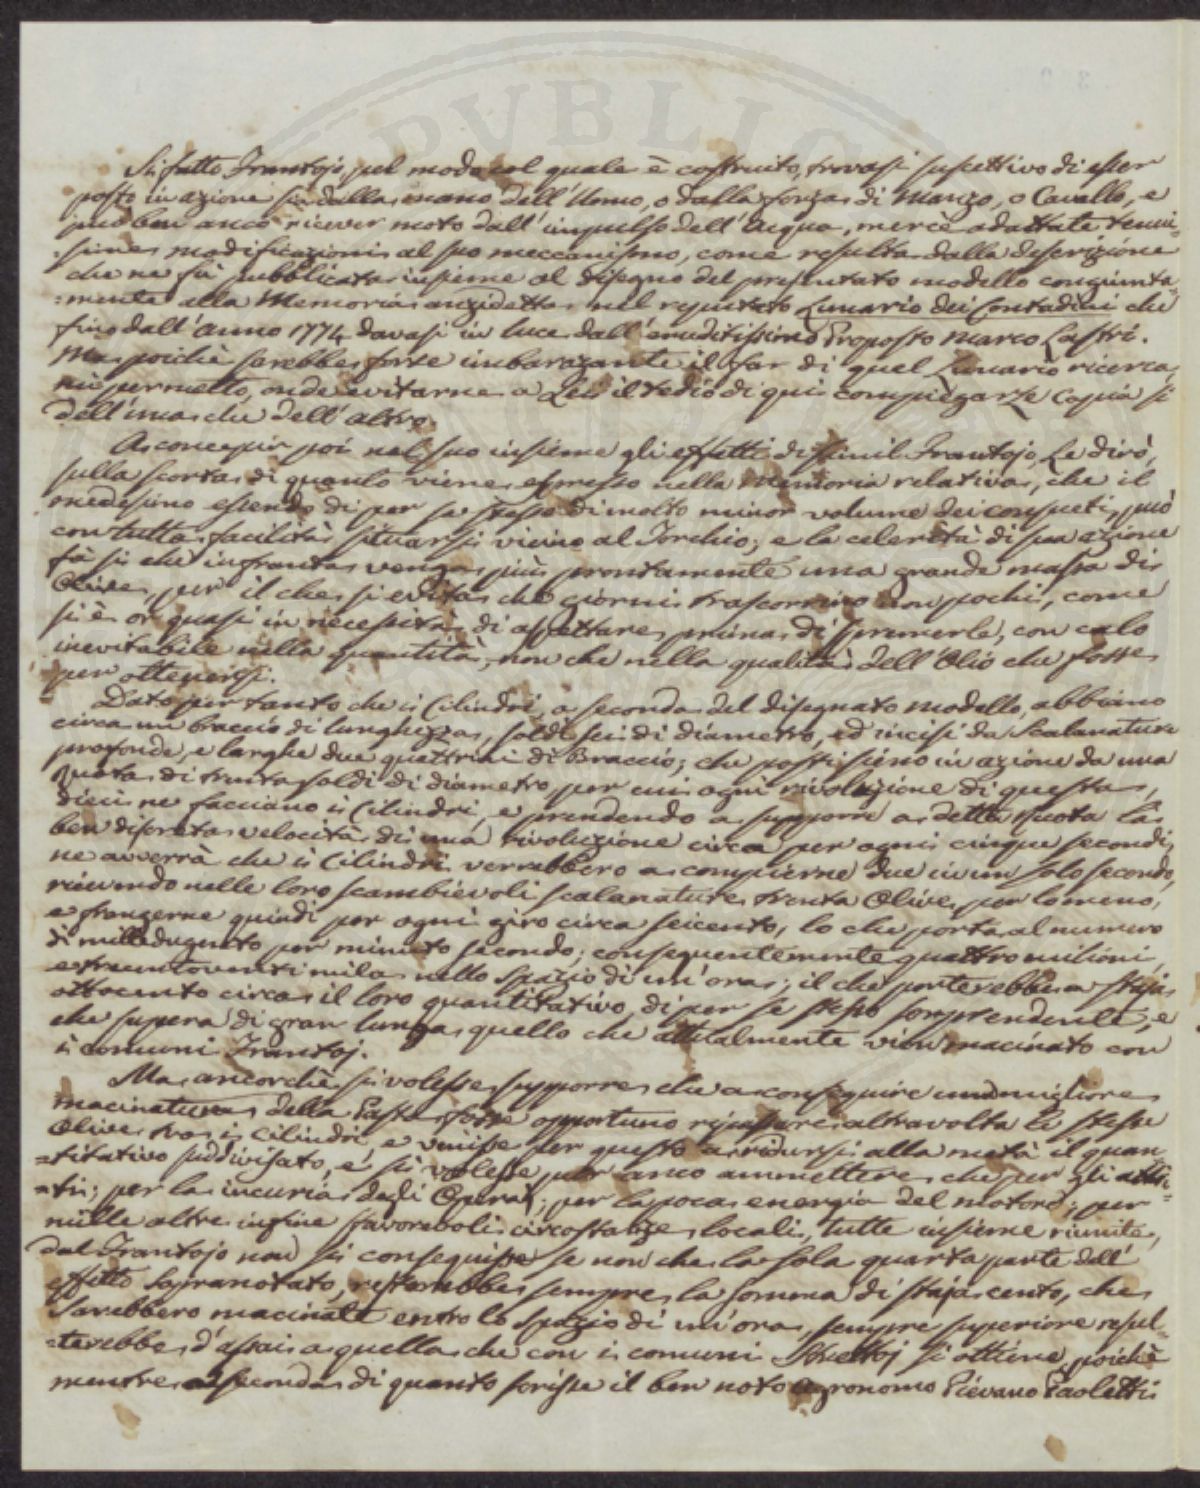 PVBLICA
Sifatto Frantojo, pel modo col quale è costruito, trovasi suscettivo di esser
posto in azione sia dalla mano dell'Uomo, o dalla forza di Manzo, o Cavallo, e
può ben anco ricever moto dall'impulso dell'Acqua, mercè adattate tenui=
=ssime modificazioni al suo meccanismo, come resulta dalla descrizione
che ne fu pubblicata insieme al disegno del presentato modello congiunta=
=mente alla Memoria anzidetta nel reputato Lunario dei Contadini che
fino dall'anno 1774 davasi in luce dall'eruditissimo Proposto Marco Lastri.
Ma poichè sarebbe forse imbarazzante il far di quel Lunario ricerca,
mi permetto, onde evitarne a Lei il tedio di qui compiegarLe Copia sì
dell'una che dell'altro.
A concepir poi nel suo insieme gli effetti di simil Frantojo, Le dirò,
sulla scorta di quanto viene espresso nella Memoria relativa, che il
medesimo essendo di per se stesso di molto minor volume dei consueti, può
con tutta facilità situarsi vicino al Torchio; e la celerità di sua azione
fà sì che infranta venga più prontamente una grande massa di
Olive, per il che si evita che giorni trascorrino non pochi, come
si è or quasi in necessità di aspettare, prima di spremerle, con calo
inevitabile nella quantità, non che nella qualità dell'Olio che fosse
per ottenersi.
Dato pertanto che i Cilindri, a seconda del disegnato modello, abbiano
circa un braccio di lunghezza, soldi sei di diametro, ed incisi da Scalanature
profonde, e larghe due quattrini di Braccio; che posti sieno in azione da una
Ruota di trenta soldi di diametro, per cui ogni rivoluzione di questa,
dieci ne facciano i Cilindri, e prendendo a supporre a detta ruota la
ben discreta velocità di una rivoluzione circa per ogni cinque secondi,
ne avverrà che i Cilindri verrebbero a compierne due in un solo secondo,
ricevendo nelle loro scambievoli scalanature trenta Olive per lo meno,
e frangerne quindi per ogni giro circa seicento, lo che porta al numero
di milledugento per minuto secondo; conseguentemente quattro milioni,
e trecentoventi mila nello spazio di un'ora; il che porterebbe a staja
ottocento circa il loro quantitativo, di per se stesso sorprendente, e
che supera di gran lunga quello che attualmente vien macinato con
i comuni Frantoj.
Ma ancorchè si volesse supporre che a conseguire una migliore
macinatura della Pasta fosse opportuno ripassare altra volta le stesse
Olive tra i Cilindri e venisse per questo a ridursi alla metà il quan=
=titativo suddivisato, e si volesse pur anco ammettere che per gli attri=
=ti; per la incuria degli Operaj; per la poca energia del motore; per
mille altre infine sfavorevoli circostanze locali, tutte insieme riunite,
dal Frantojo non si conseguisse se non che la sola quarta parte dell'
effetto sopranotato, resterebbe sempre la somma di staja cento, che
sarebbero macinate entro lo spazio di un'ora, sempre superiore resul=
=terebbe d'assai a quella che con i comuni Strettoj si ottiene, poichè
mentre a seconda di quanto scrisse il ben noto Agronomo Pievano Paoletti